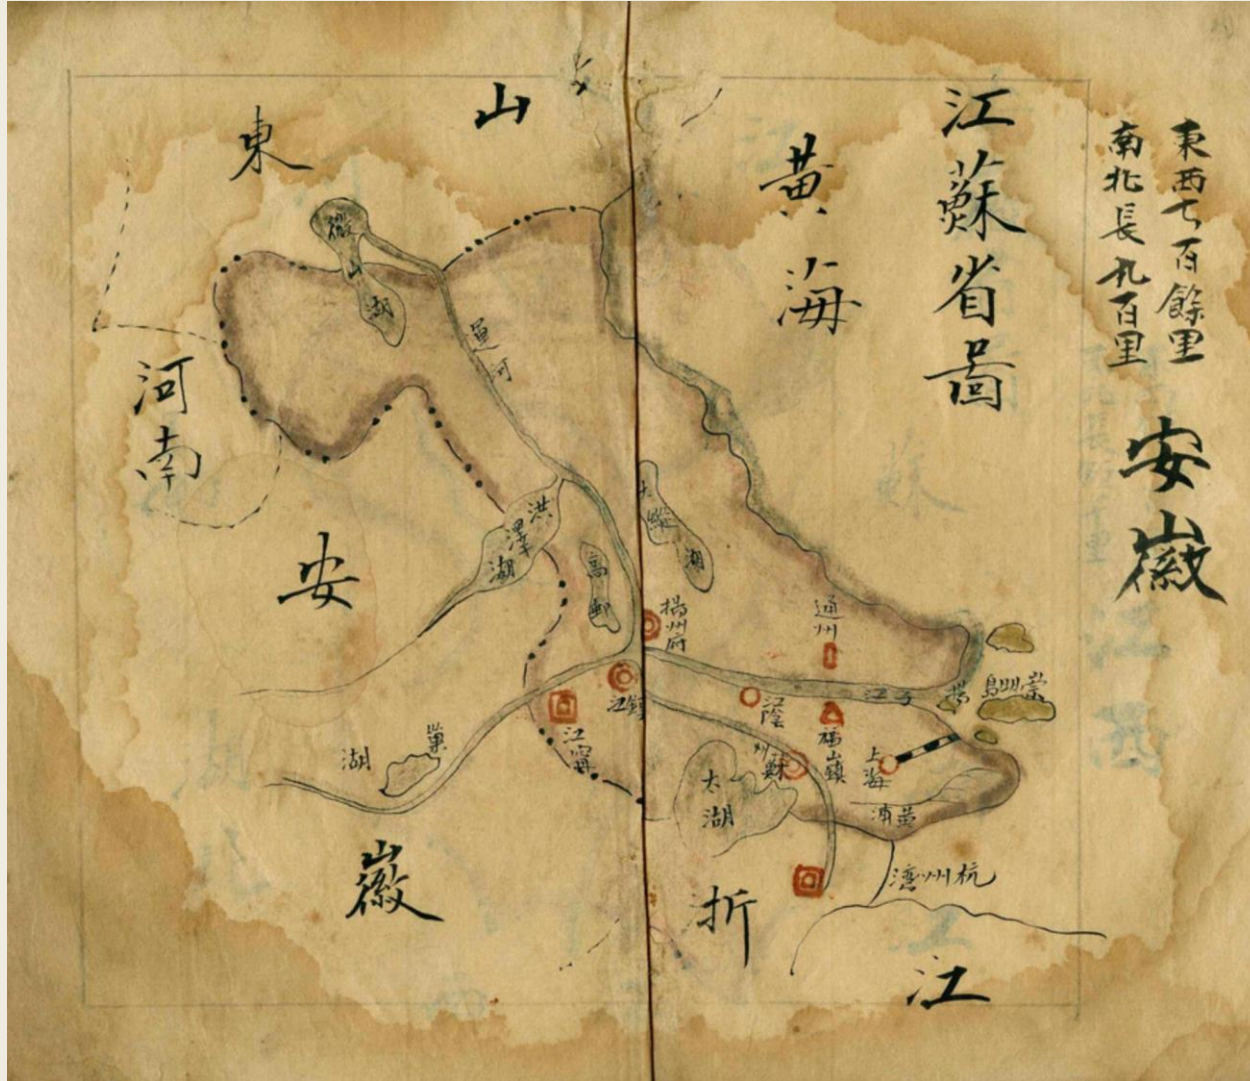 東西七百餘里
南北長九百里
安徽
江蘇省啚
黃海
山
東
河南
安
徽
折
江
微山湖
運河
洪澤湖
高郵
大縱湖
揚州府
通州
鎮江
江寧
江陰
福山鎮
蘇州
上海
黃浦
太湖
巢
湖
揚子江
崇明島
杭州灣